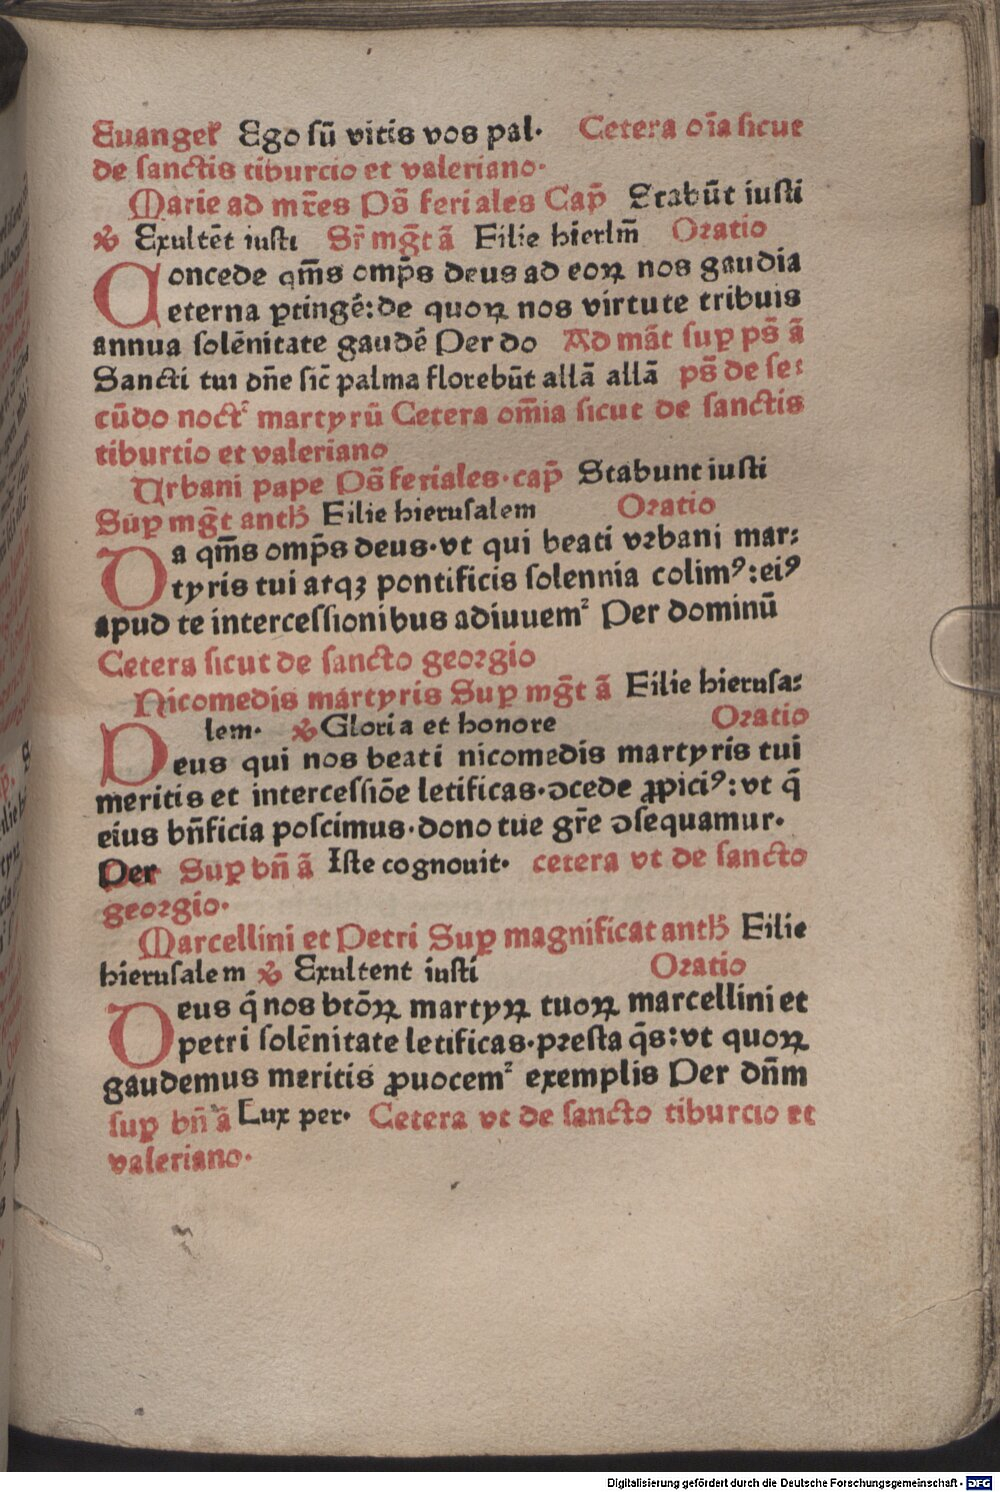 Euangeł Ego sū vitis vos pal· Cetera oīa sicut
de sanctis tiburcio et valeriano·
Marie ad mr̄es Ps̄ feriales Cap̄ Stabūt iusti
℟ Exultēt iusti Sr̄ mg̅t ā Filie hierlm̄ Oratio
Concede qm̄s omp̄s deus ad eoꝝ nos gaudia
eterna ꝑtingē: de quoꝝ nos virtute tribuis
annua solēnitate gaudē Per do Ad māt suꝑ ps̄ ā
Sancti tui dn̄e sic̄ palma florebūt allā allā ps̄ de se⸗
cūdo noctꝰ martyrū Cetera om̄ia sicut de sanctis
tiburtio et valeriano
Urbani pape Ps̄ feriales· cap̄ Stabunt iusti
Suꝑ mg̅t anth̄ Filie hierusalem Oratio
Da qm̄s omp̄s deus· vt qui beati vrbani mar⸗
tyris tui atqꝫ pontificis solennia colimꝰ: eiꝰ
apud te intercessionibus adiuuem̃ Per dominū
Cetera sicut de sancto georgio
Nicomedis martyris Suꝑ mg̅t ā Filie hierusa⸗
lem· ℟ Gloria et honore Oratio
Deus qui nos beati nicomedis martyris tui
meritis et intercessiōe letificas· ꝯcede ꝓpiciꝰ: vt q̄
eius bn̄ficia poscimus· dono tue gr̄e ꝯsequamur·
Per Suꝑ bn̄ ā Iste cognouit· cetera vt de sancto
georgio·
Marcellini et Petri Suꝑ magnificat anth̄ Filie
hierusalem ℟ Exultent iusti Oratio
Deus q̄ nos btōꝝ martyꝝ tuoꝝ marcellini et
petri solēnitate letificas· presta q̄s: vt quoꝝ
gaudemus meritis ꝓuocem̃ exemplis Per dn̄m
suꝑ bn̄ ā Lux per· Cetera vt de sancto tiburcio et
valeriano·
Digitalisierung gefördert durch die Deutsche Forschungsgemeinschaft - DFG